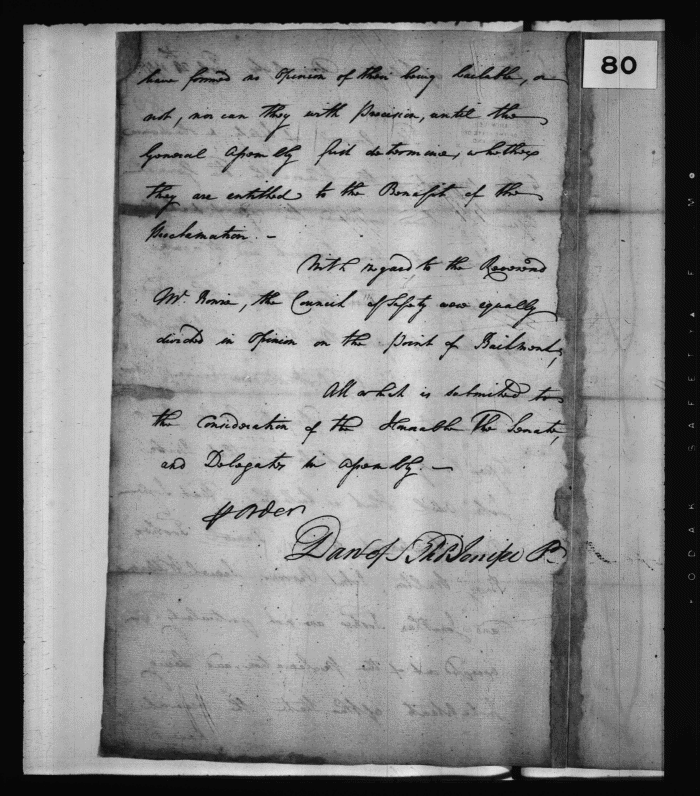 80
have formed no Opinion of their being bailable, or
not, nor can they with Precision, until the
General Assembly first determine, whether
they are entitled to the Benefit of the
Proclamation. —
With regard to the Reverend
Mr. Bowie, the Council of Safety were equally
divided in Opinion on the Point of Bailment,
All which is submitted to
the Consideration of the Honorable The Senate,
and Delegates in Assembly. —
order
Dan of St Thos Jenifer Pt
KODAK SAFETY FILM